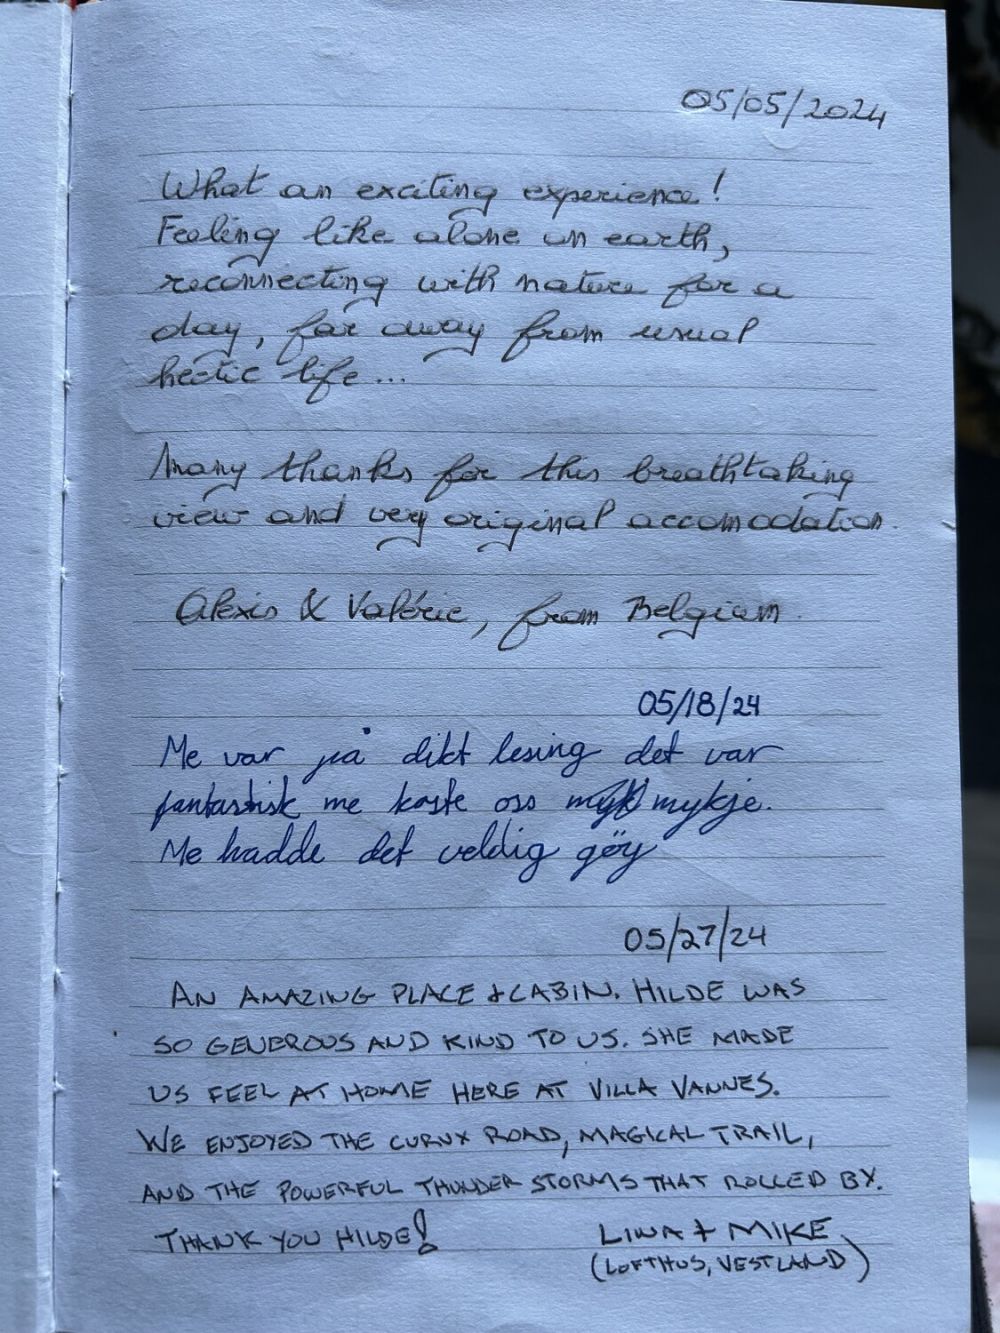 05/05/2024
What an exciting experience!
Feeling like alone on earth,
reconnecting with nature for a
day, far away from usual
hectic life...
Many thanks for this breathtaking
view and very original accomodation.
Alexis & Valérie, from Belgium.
05/18/24
Me var på dikt lesing det var
fantastisk me koste oss mykje.
Me hadde det veldig göy
05/27/24
AN AMAZING PLACE & CABIN. HILDE WAS
SO GENEROUS AND KIND TO US. SHE MADE
US FEEL AT HOME HERE AT VILLA VANNES.
WE ENJOYED THE CURVY ROAD, MAGICAL TRAIL,
AND THE POWERFUL THUNDER STORMS THAT ROLLED BY.
THANK YOU HILDE! LINA + MIKE
(LOFTHUS, VESTLAND)